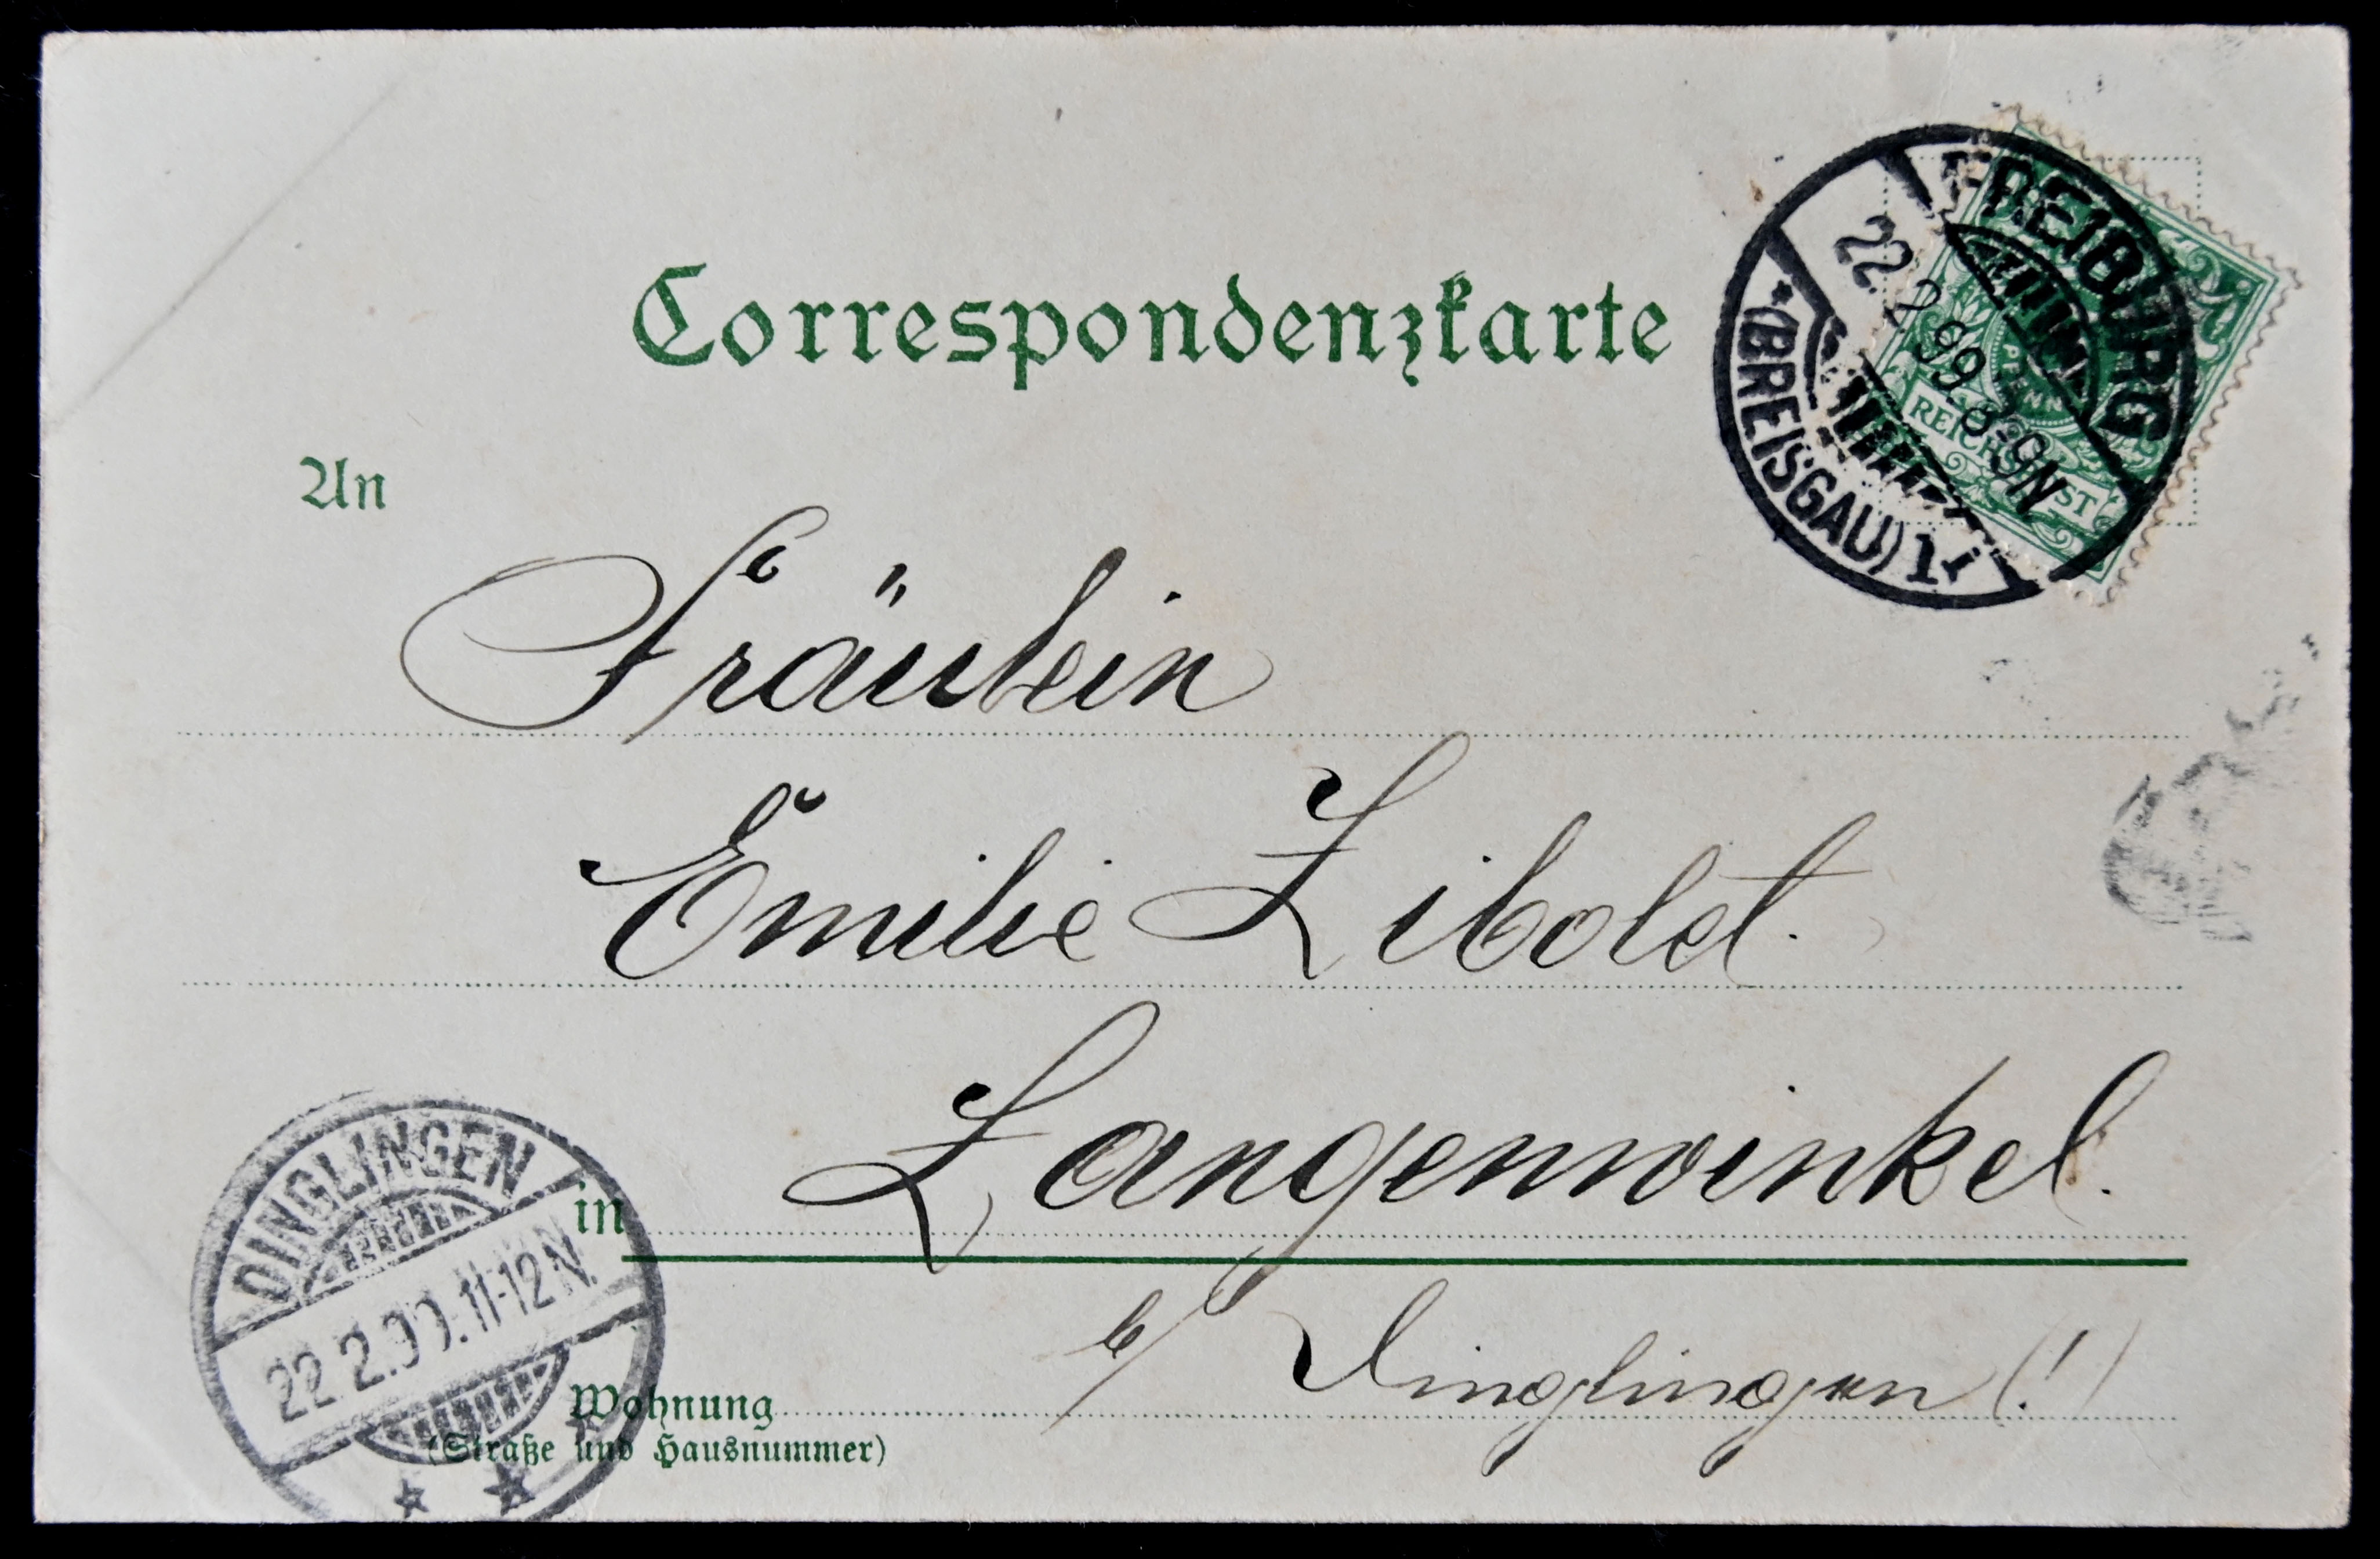 Correspondenzkarte
FREIBURG
22. 2. 99. 8-9N
*(BREISGAU) 1
REICHSPOST
An
Fräulein
Emilie Libolet.
in Langenwinkel.
b/ Dinglingen (!)
Wohnung
(Straße und Hausnummer)
DINGLINGEN
22.2.99.11-12N.